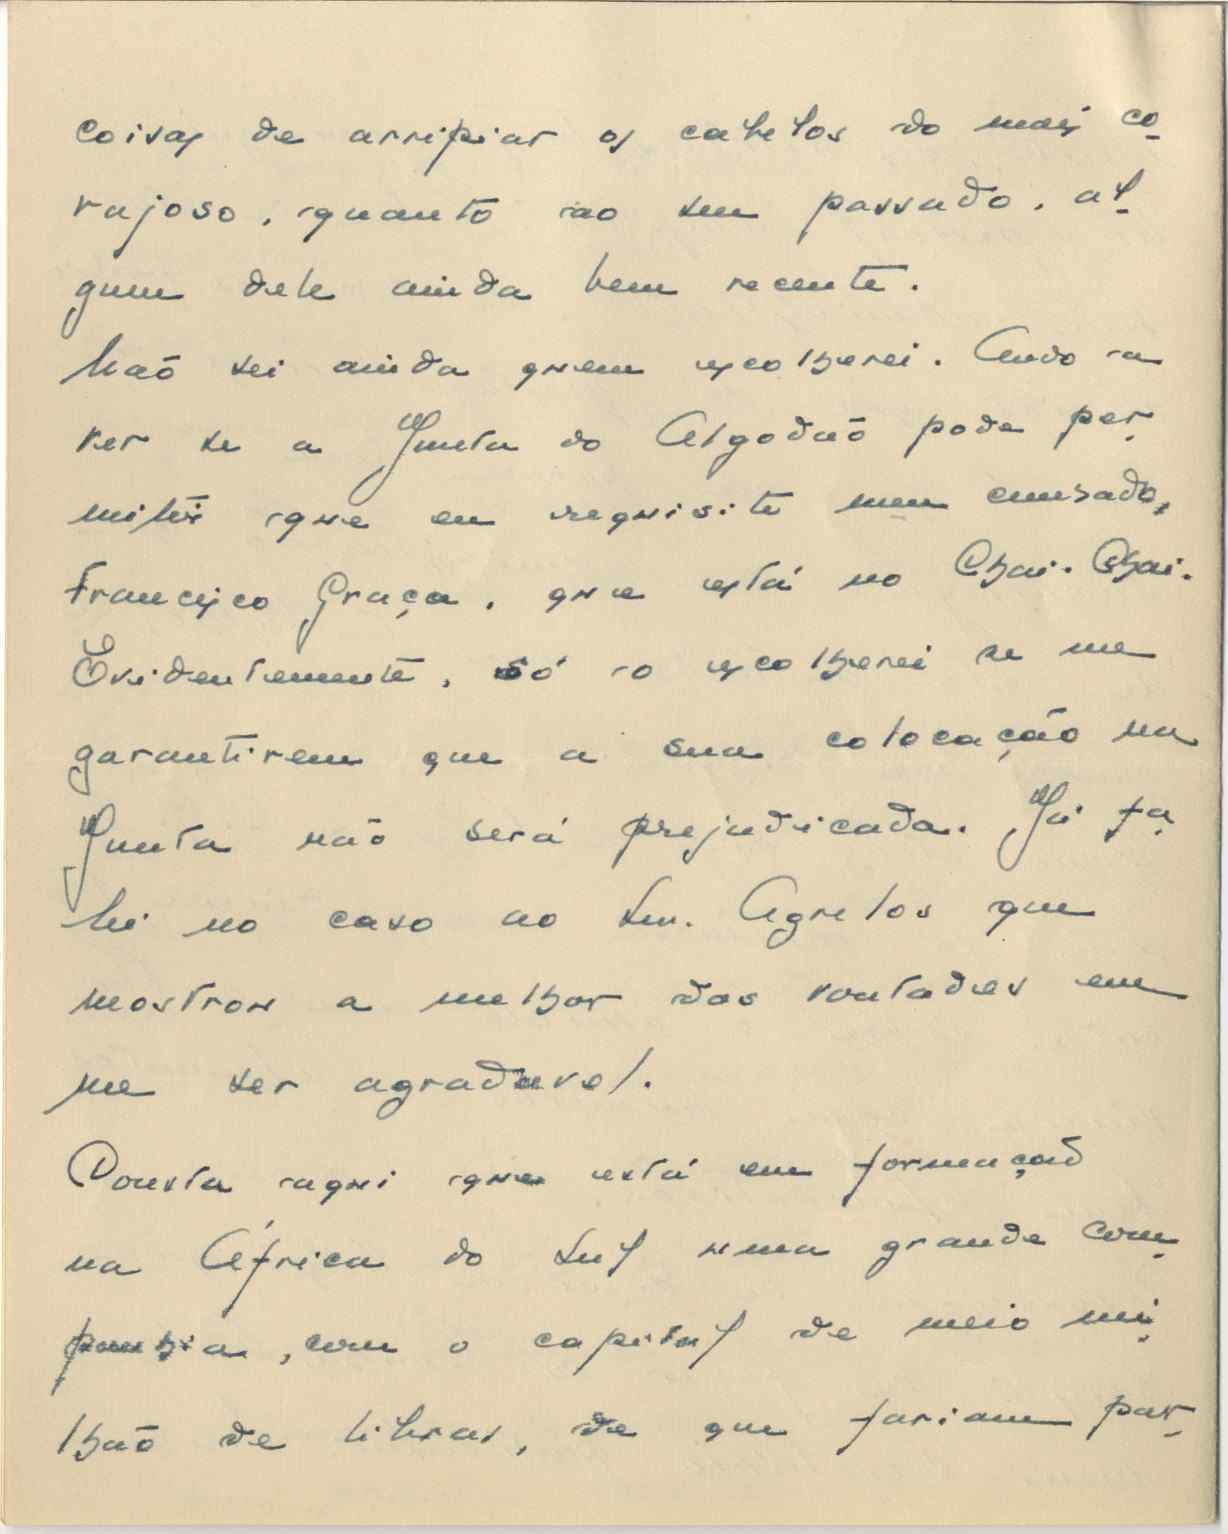 coisas de arripiar os cabelos do mais co-
rajoso, quanto ao seu passado, al-
gum dele ainda bem recente.
Não sei ainda quem escolherei. Ando a
ver se a Junta do Algodão pode per-
mitir que eu requisite meu cunhado,
Francisco Graça, que está no Chai-Chai.
Evidentemente, só o escolherei se me
garantirem que a sua colocação na
Junta não será prejudicada. Já fa-
lei no caso ao Snr. Agrelos que
mostrou a melhor das vontades em
me ser agradavel.
Consta aqui que está em formação
na África do Sul uma grande com-
panhia, com o capital de meio mi-
lhão de libras, de que fariam par-